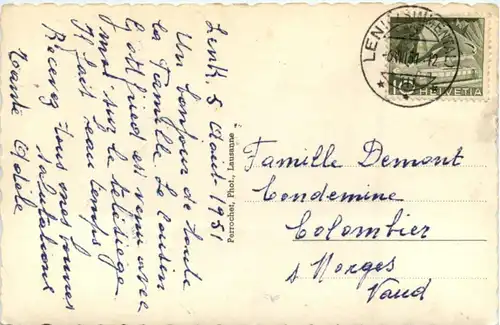 Lenk, 5 Août 1951
Un bonjour de toute
la famille le cousin
Gottfried est venu avec
moi sur le télésiège.
Il fait beau temps
Recevez tous mes bonnes
salutations
Tante Adèle
Perrochet, Phot., Lausanne
LENK
HELVETIA
Famille Demont
Condemine
Colombier
s Morges
Vaud